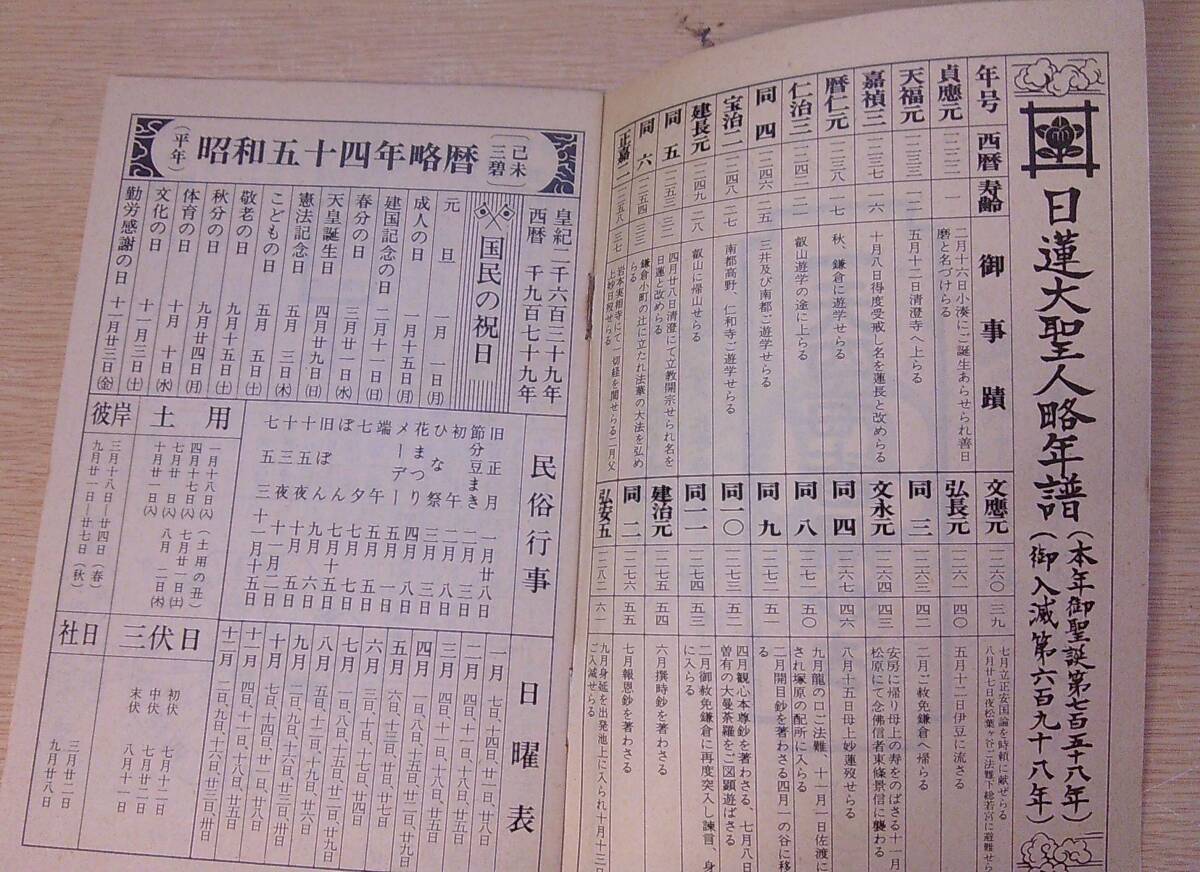 日蓮大聖人略年譜
(本年御聖誕第七百五十八年)
(御入滅第六百九十八年)
年号 西暦 寿齢 御事蹟
貞應元 一二二二 一 二月十六日小湊にご誕生あらせられ善日磨と名づけらる
天福元 一二三三 一二 五月十二日清澄寺へ上らる
嘉禎三 一二三七 一六 十月八日得度受戒し名を蓮長と改めらる
暦仁元 一二三八 一七 秋、鎌倉に遊学せらる
仁治三 一二四二 二一 叡山遊学の途に上らる
同四 一二四六 二五 三井及び南都ご遊学せらる
宝治二 一二四八 二七 南都高野、仁和寺ご遊学せらる
建長元 一二四九 二八 叡山に帰山せらる
同五 一二五三 三二 四月廿八日清澄にて立教開宗せられ名を日蓮と改めらる
同六 一二五四 三三 鎌倉小町の辻に立たれ法華の大法を弘めらる
正嘉二 一二五八 三七 岩本実相寺にて一切経を閲せらる二月父上妙日歿せらる
文應元 一二六〇 三九 七月立正安国論を時頼に献ぜらる
八月廿七日夜松葉ヶ谷ご法難下総若宮に避難せら
弘長元 一二六一 四〇 五月十二日伊豆に流さる
同三 一二六三 四二 二月ご赦免鎌倉へ帰らる
文永元 一二六四 四三 安房に帰り母上の寿をのばさる十一月
松原にて念佛信者東條景信に襲わる
同四 一二六七 四六 八月十五日母上妙蓮歿せらる
同八 一二七一 五〇 九月龍の口ご法難、十一月一日佐渡に
され塚原の配所に入らる
同九 一二七二 五一 二月開目鈔を著わさる四月一の谷に移
る
同一〇 一二七三 五二 四月観心本尊鈔を著わさる、七月八日
曽有の大曼荼羅をご図顕遊ばさる
同一一 一二七四 五三 二月御赦免鎌倉に再度突入し諫言、身
に入らる
建治元 一二七五 五四 六月撰時鈔を著わさる
同二 一二七六 五五 七月報恩鈔を著わさる
弘安五 一二八二 六一 九月身延を出発池上に入られ十月十三日
ご入滅せらる
昭和五十四年略暦
(己未 三碧)
(平年)
皇紀二千六百三十九年
西暦 千九百七十九年
国民の祝日
元旦 一月一日(月)
成人の日 一月十五日(月)
建国記念の日 二月十一日(日)
春分の日 三月廿一日(水)
天皇誕生日 四月廿九日(日)
憲法記念日 五月三日(木)
こどもの日 五月五日(土)
敬老の日 九月十五日(土)
秋分の日 九月廿四日(月)
体育の日 十月十日(水)
文化の日 十一月三日(土)
勤労感謝の日 十一月廿三日(金)
民俗行事
旧正月 一月廿八日
節分豆まき 二月三日
初午 二月八日
ひな祭 三月三日
花まつり 四月八日
メーデー 五月一日
端午 五月五日
七夕 七月七日
ぼん 七月十五日
旧ぼん 九月六日
十五夜 十月五日
十三夜 十一月二日
七五三 十一月十五日
土用
一月十八日(入)
四月十七日(入) (土用の丑)
七月廿日(入) 七月廿一日(土)
十月廿一日(入) 八月二日(木)
彼岸
三月十八日―廿四日(春)
九月廿一日―廿七日(秋)
日曜表
一月 七日、十四日、廿一日、廿八日
二月 四日、十一日、十八日、廿五日
三月 四日、十一日、十八日、廿五日
四月 一日、八日、十五日、廿二日、廿九日
五月 六日、十三日、廿日、廿七日
六月 三日、十日、十七日、廿四日
七月 一日、八日、十五日、廿二日、廿九日
八月 五日、十二日、十九日、廿六日
九月 二日、九日、十六日、廿三日、卅日
十月 七日、十四日、廿一日、廿八日
十一月 四日、十一日、十八日、廿五日
十二月 二日、九日、十六日、廿三日、卅日
三伏日
初伏 七月十二日
中伏 七月廿二日
末伏 八月十一日
社日
三月廿二日
九月廿八日